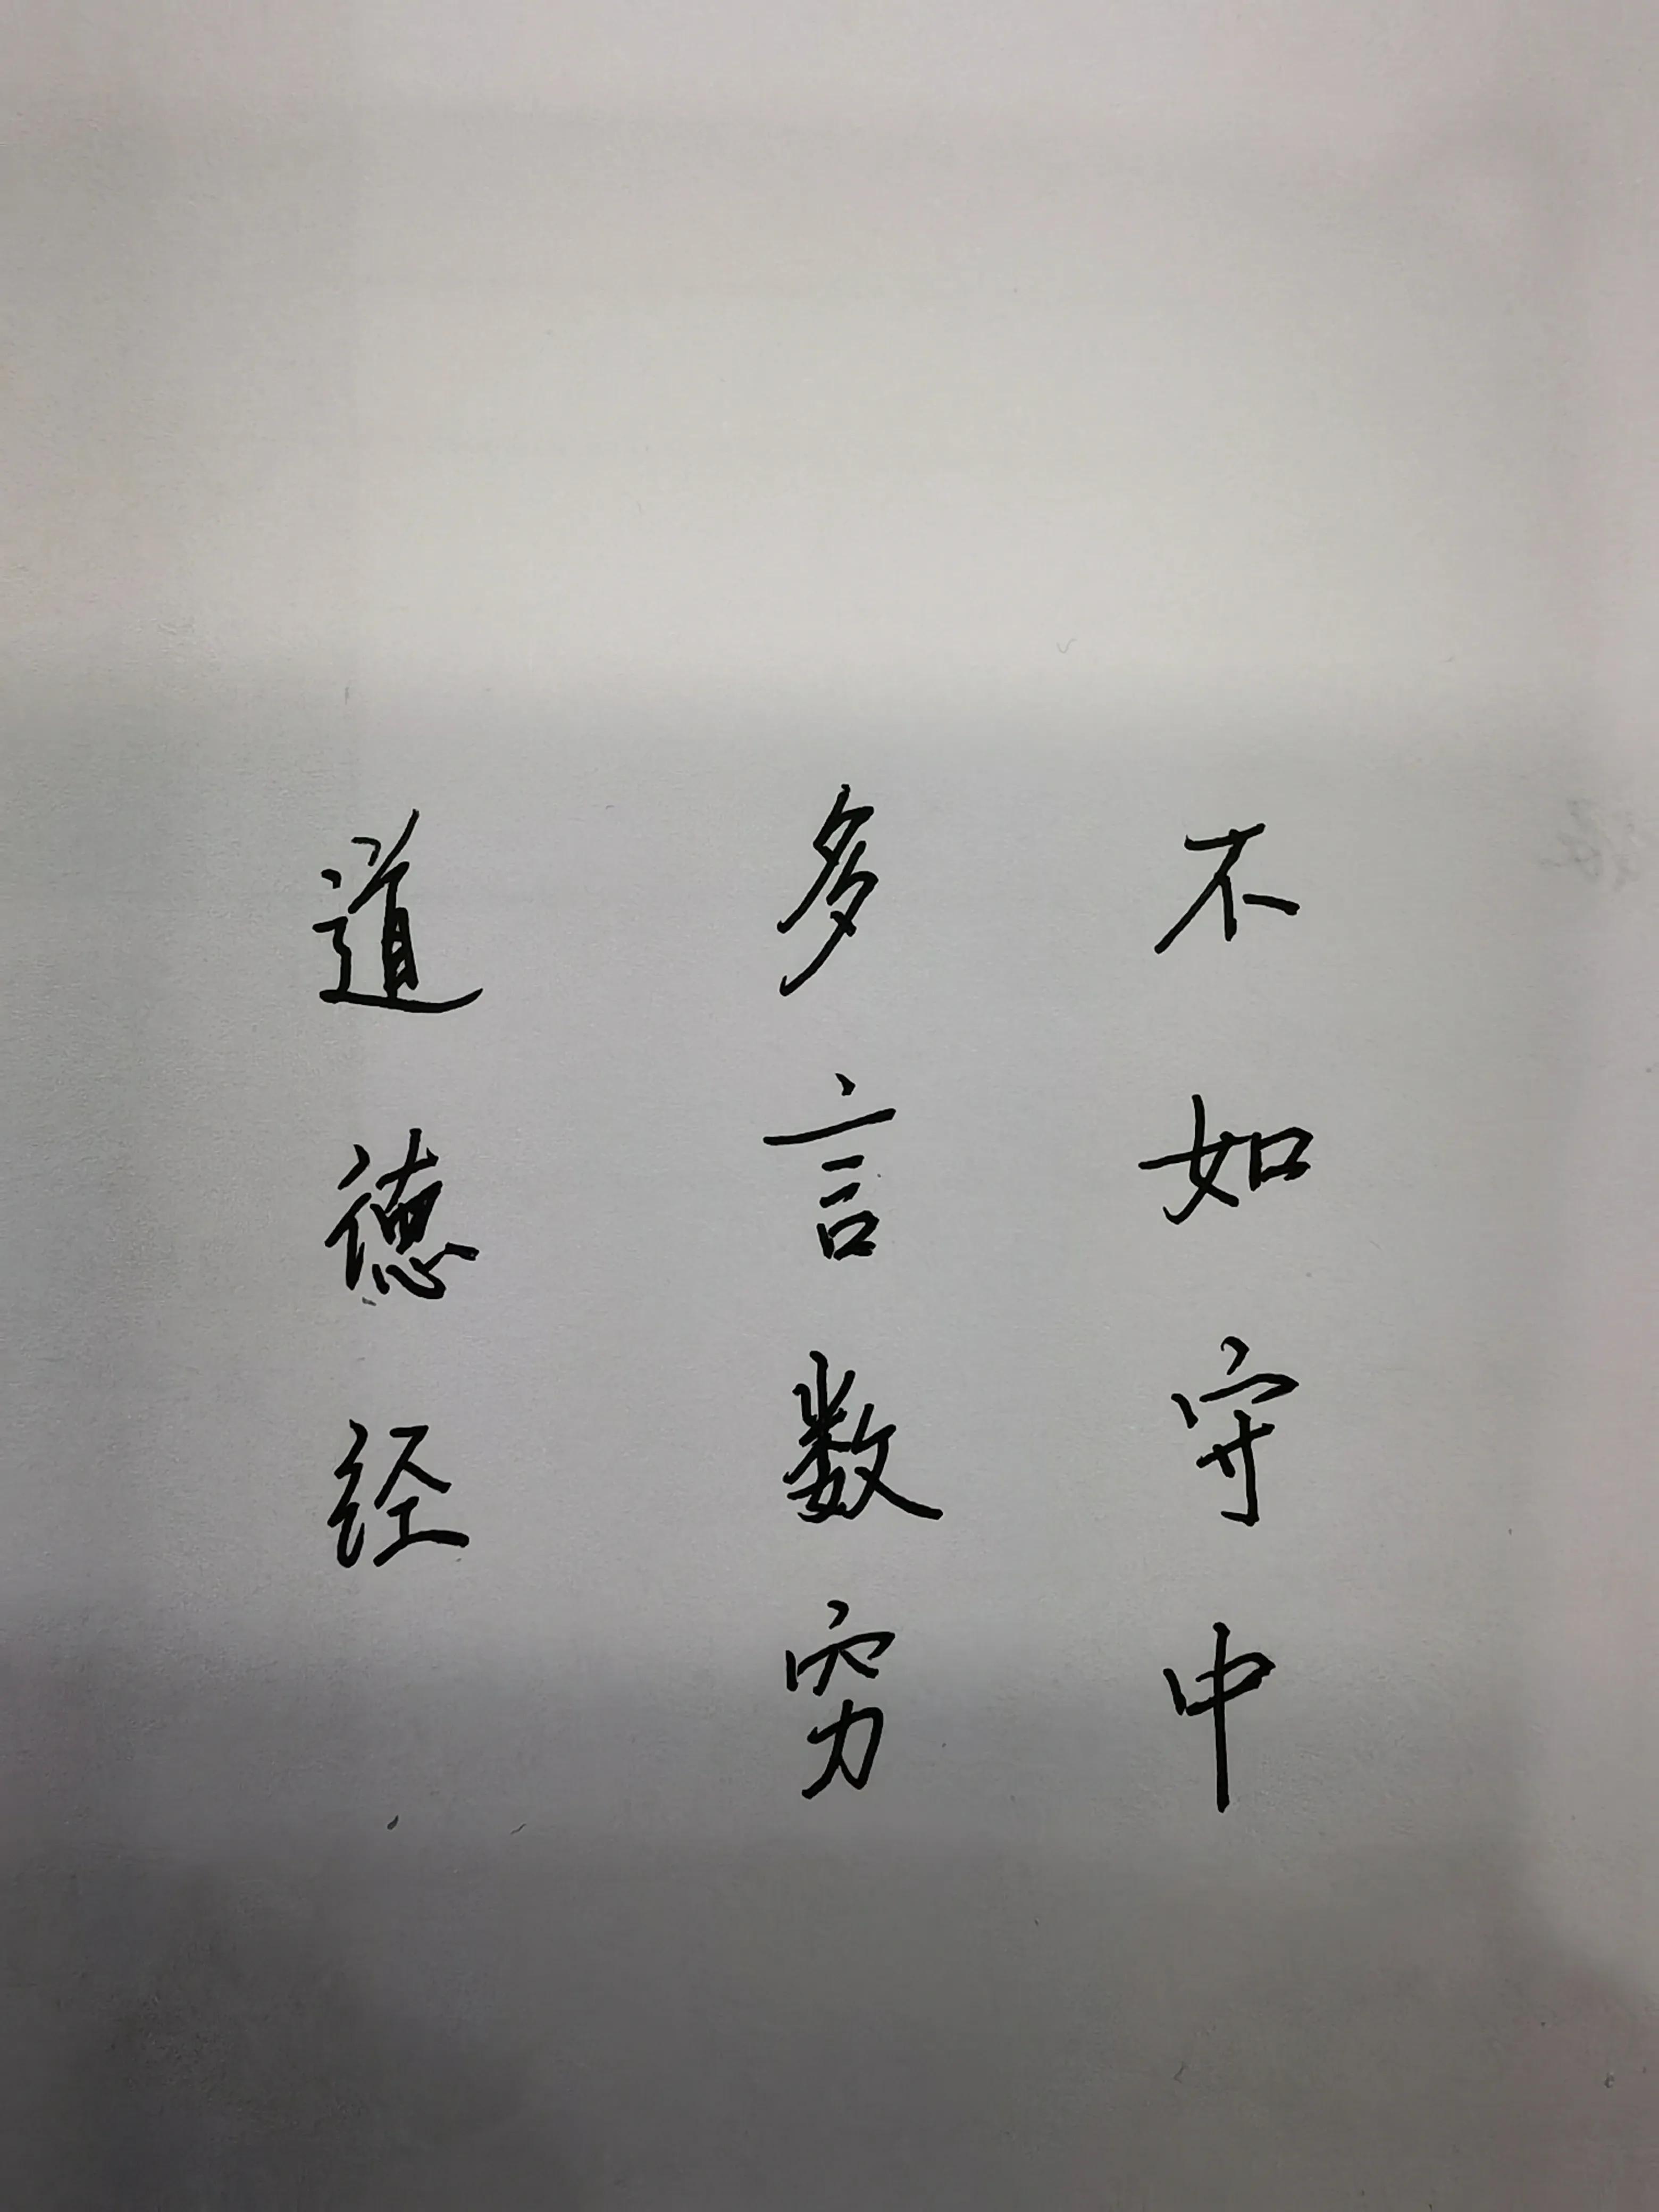 不如守中
多言数穷
道德经